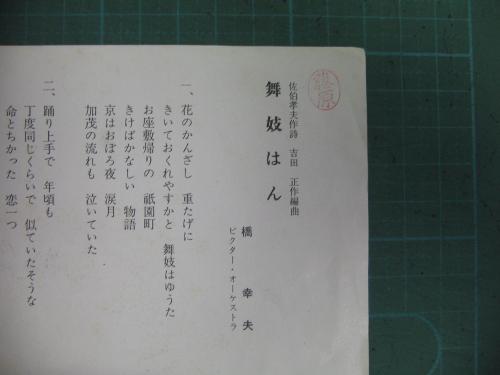 舞妓はん
佐伯孝夫作詩 吉田 正作編曲
橋 幸夫
ビクター・オーケストラ
一、花のかんざし 重たげに
きいておくれやすかと 舞妓はゆうた
お座敷帰りの 祇園町
きけばかなしい 物語
京はおぼろ夜 涙月
加茂の流れも 泣いていた
二、踊り上手で 年頃も
丁度同じくらいで 似ていたそうな
命とちかった 恋一つ